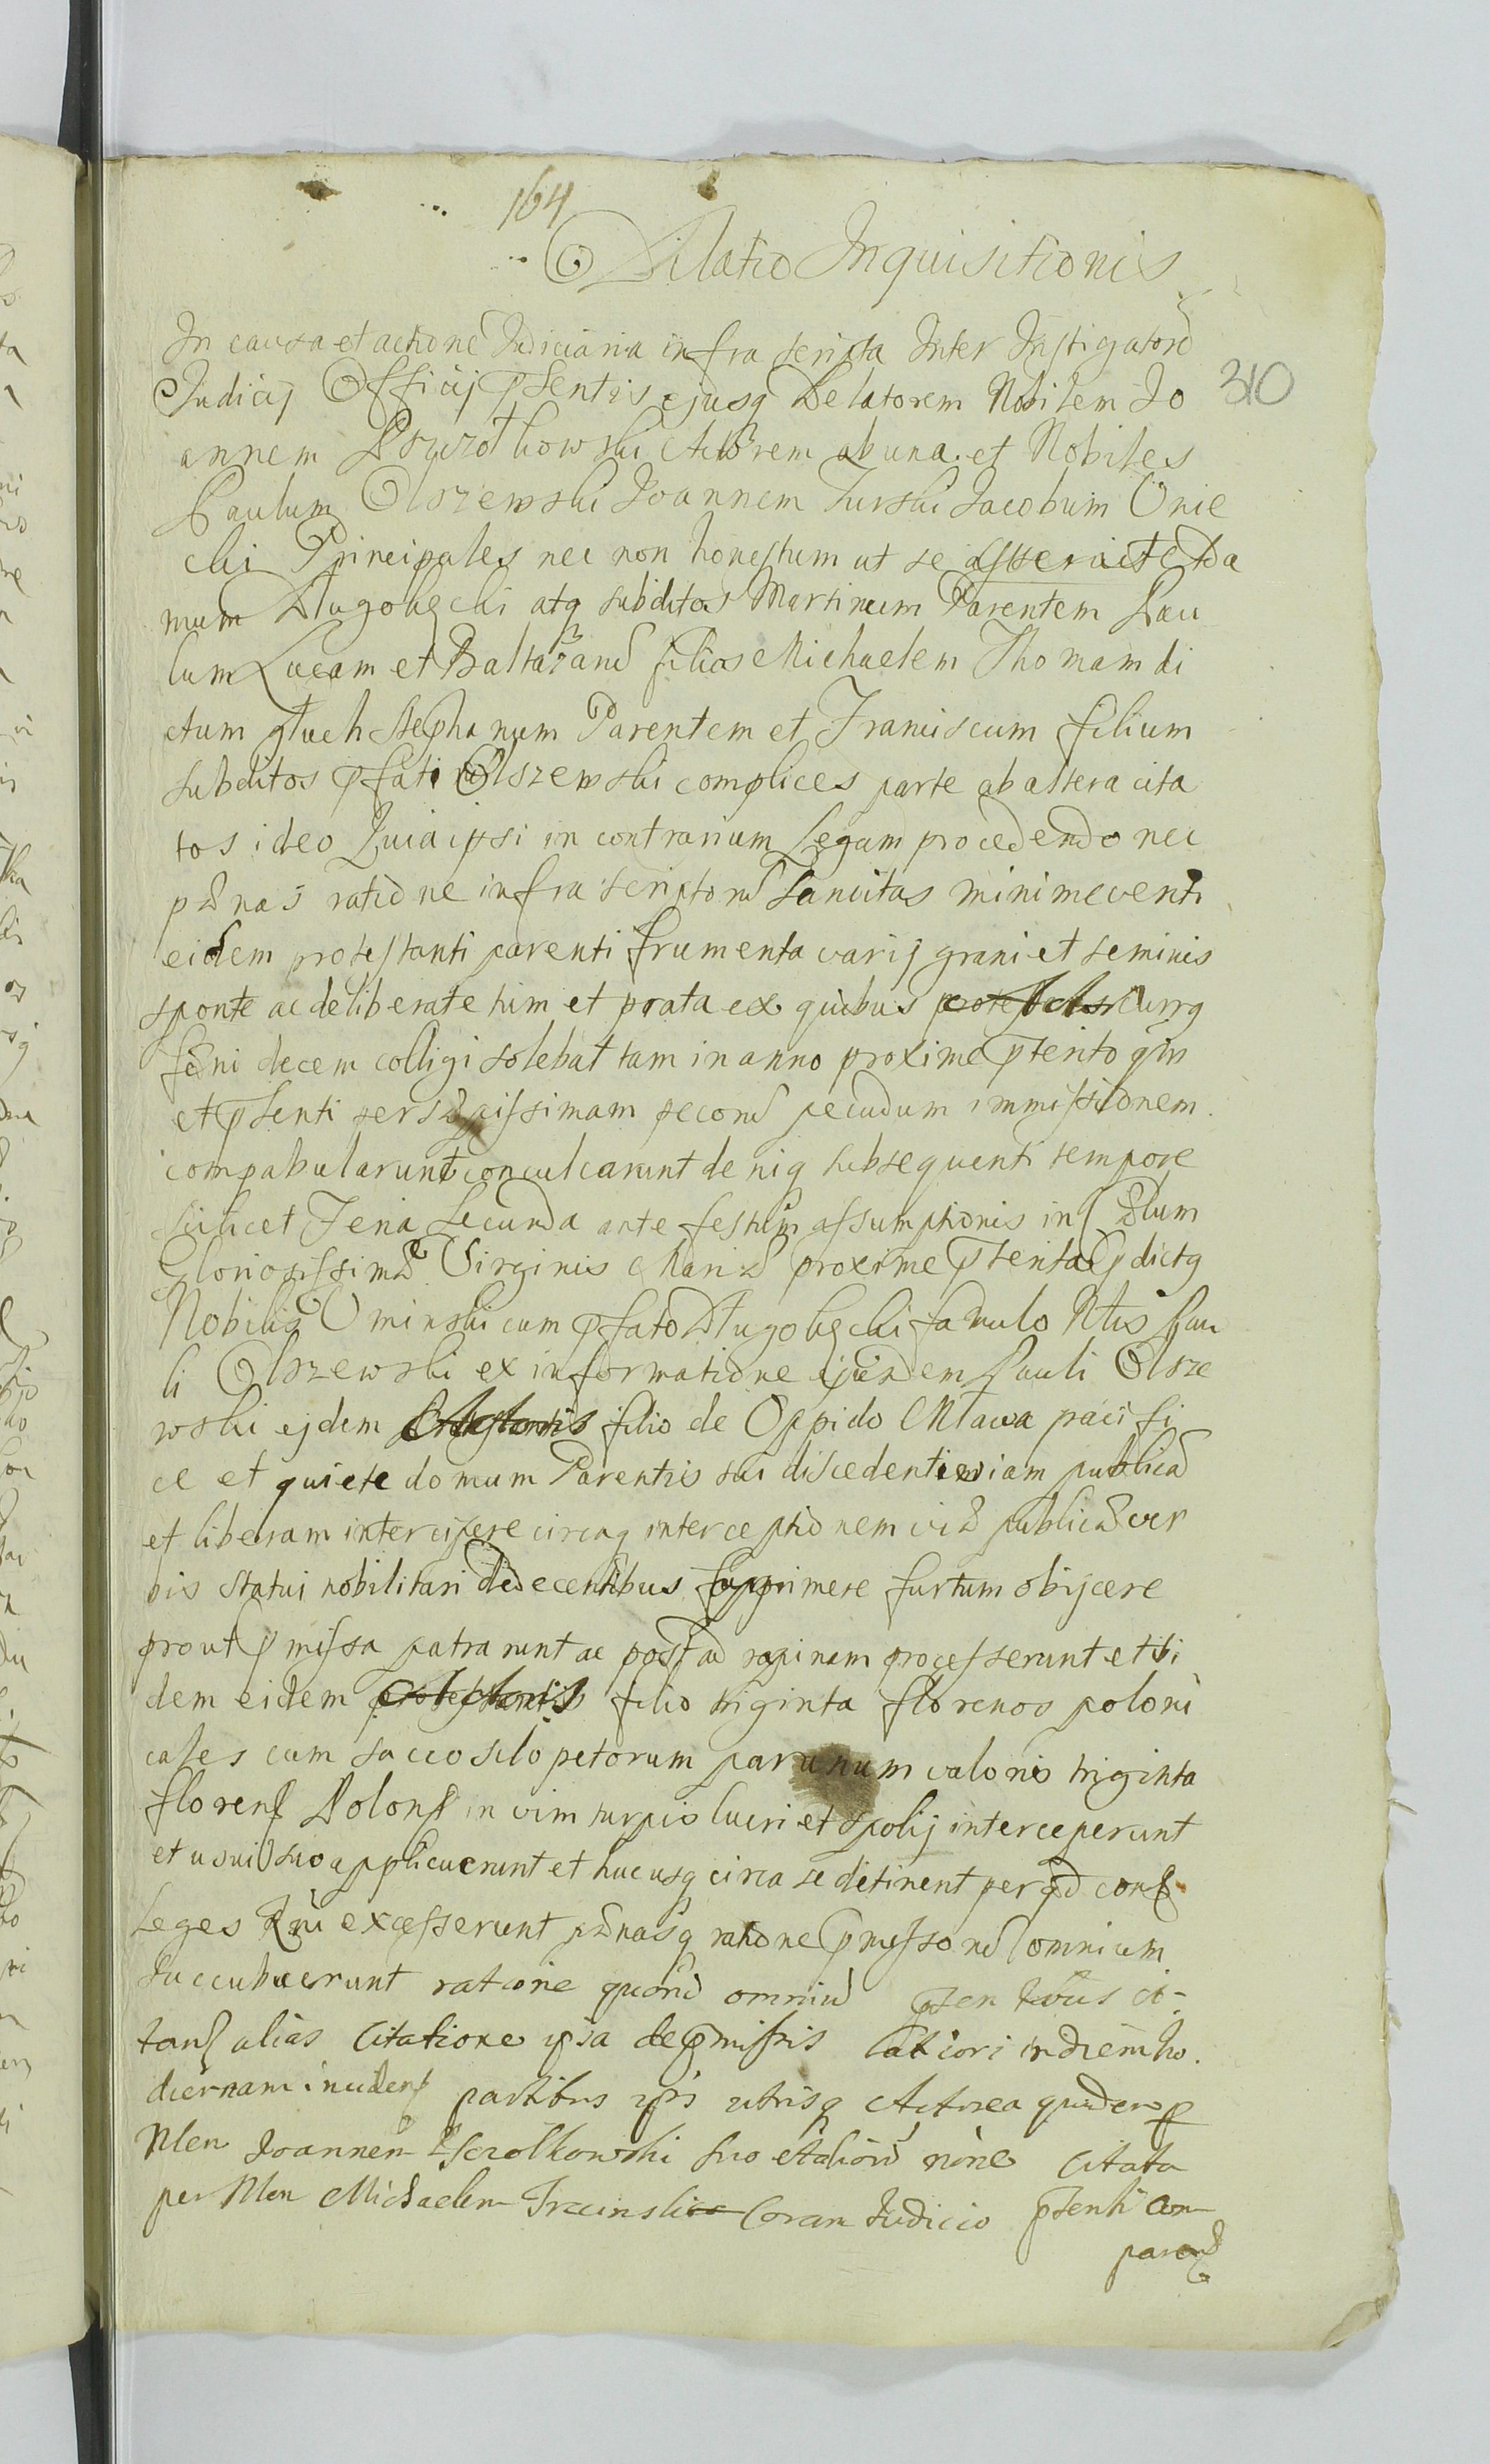 164
Dilatio Inquisitionis
In causa et actione Judiciaria infra scripta Inter Instigatorē
Judicij Officij pñtis ejusq Delatorem Nobilem Jo
310
annem Pszczołkowski Actorem ab una et Nobiles
Paulum Olszewski Joannem Turski Jacobum Unie
cki Principales nec non honestum ut se asserit Da
mum Długołęcki atq subditos Martinum Parentem Pau
lum Lucam et Baltazarū filios Michaelem Thomam di
ctum głuch Stephanum Parentem et Franciscum filium
subditos pfati Olszewski complices parte ab altera cita
tos ideo Quia ipsi in contrarium Legum procedendo nec
pænas ratione infra scriptorū sancitas minime veriti
eidem protestanti parenti frumenta varij grani et seminis
sponte ac deliberate tum et prata ex quibus currq
fæni decem colligi solebat tam in anno proxime pterito qm
et psenti per sæpissimam pecorū pecudum immissionem
compabularunt conculcarunt deniq subsequenti tempore
scilicet Feria Secunda ante festum assumptionis in Cælum
Gloriosissimæ Virginis Mariæ proxime pterita pdictq
Nobilis Uminski cum pfato Długołęcki famulo Nlis Pau
li Olszewski ex informatione ejusdem Pauli Olsze
wski ejdem filio de Oppido Mława pacifi
ce et quiete domum Parentis sui discedenti viam publicā
et liberam intercipere circaq interceptionem viæ publicæ ver
bis statui nobilitari dedecentibus opprimere furtum obijcere
prout pmissa patrarunt ac post ad rapinam processerunt et ibi
dem eidem filio triginta florenos poloni
cales cum sacco sclopetorum par unum valoris triginta
floren Polon in vim turpis lucri et spolij interceperunt
et usui suo applicuerunt et hucusq circa se detinent per qd cont
Leges Rni excesserunt pænasq ratione pmissorū omnium
succubuerunt ratione quorū omniū psentibus ci-
tant alias Citatione ipsa de pmissis latiori in diem ho
diernam inciden partibus ipsis utrisq Actorea quidem p
Nlem Joannem Pszczolkowski suo et aliorū nine Citata
per Nlem Michaelem Trcinski Coram Judicio psenti com
paren